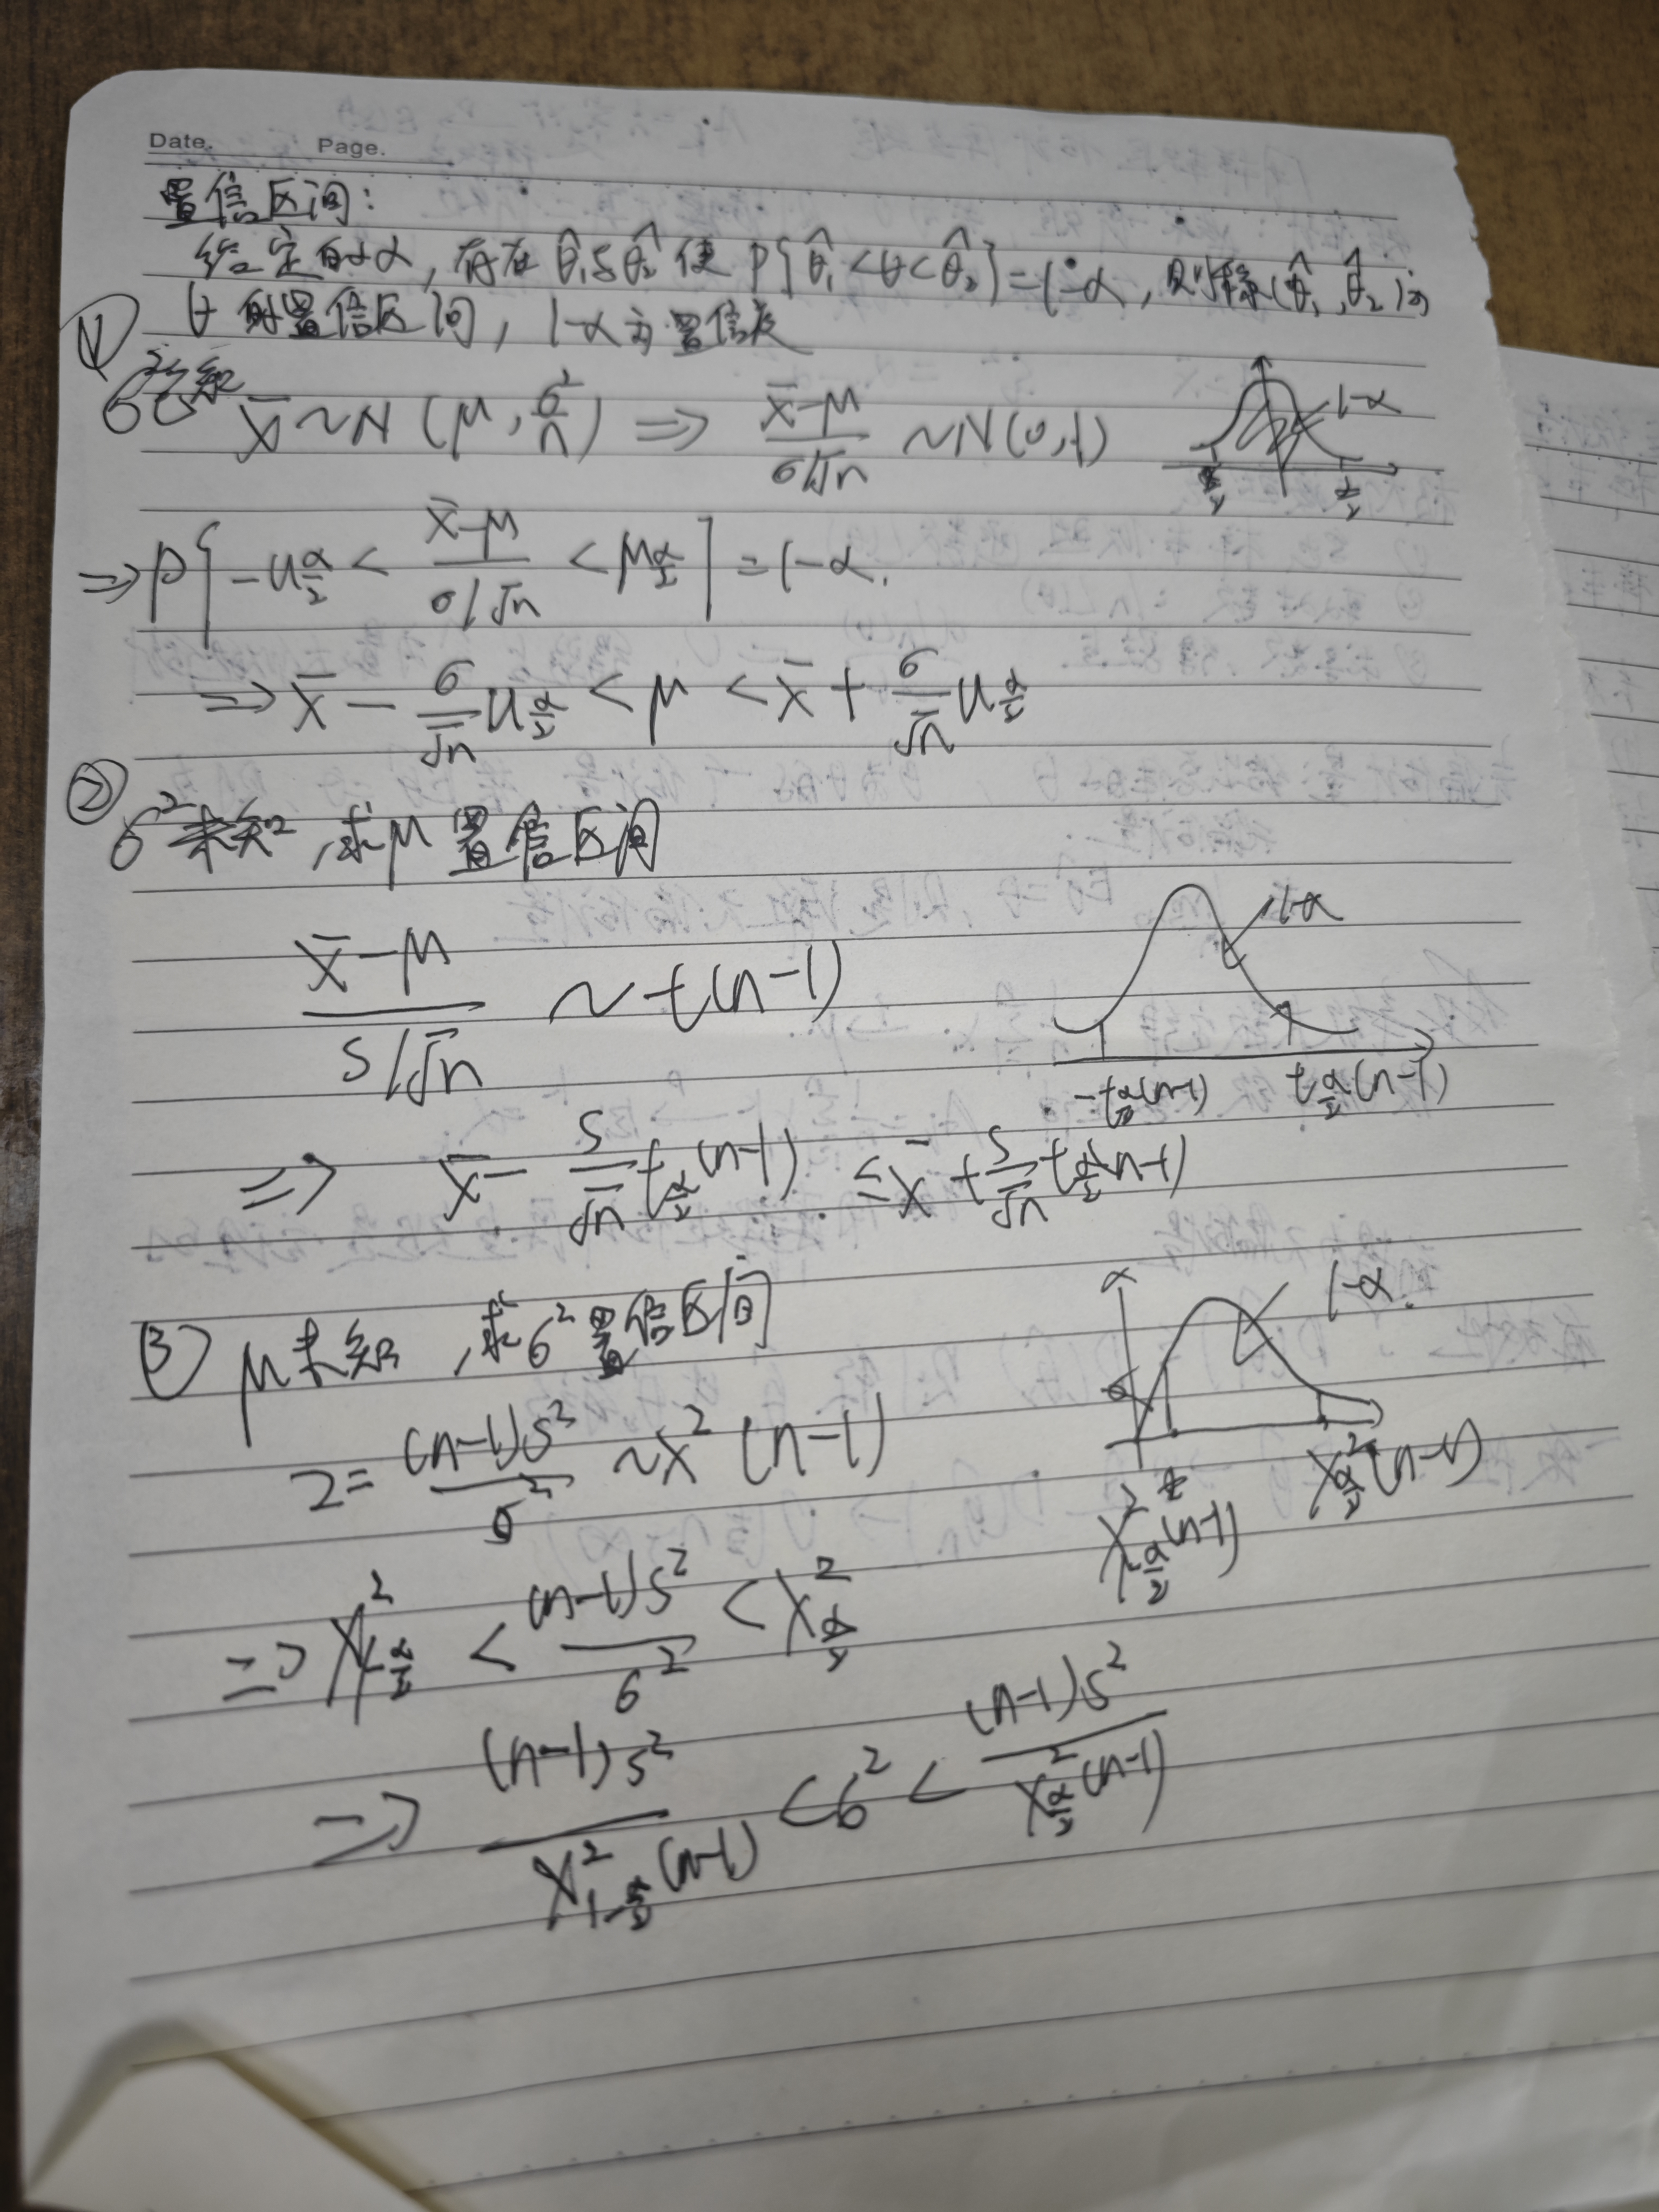 Date. Page.
置信区间:
给定的α, 存在θ̂₁与θ̂₂ 使 P{θ̂₁<θ<θ̂₂}=1-α, 则称(θ̂₁,θ̂₂)为
θ的置信区间, 1-α为置信度
① σ²已知
X̄~N(μ,σ²/n) ⇒ (X̄-μ)/(σ/√n) ~N(0,1) 1-α
⇒P{-u_{α/2} < (X̄-μ)/(σ/√n) < μ_{α/2}} =1-α.
⇒ X̄ - σ/√n u_{α/2} < μ < X̄ + σ/√n u_{α/2}
② σ²未知,求μ置信区间
(X̄-μ)/(S/√n) ~t(n-1) 1-α
-t_{α/2}(n-1) t_{α/2}(n-1)
⇒ X̄ - S/√n t_{α/2}(n-1) ≤ X̄ + S/√n t_{α/2}(n-1)
③ μ未知,求σ²置信区间 1-α.
Z= (n-1)S²/σ² ~X²(n-1)
X²_{1-α/2}(n-1) X²_{α/2}(n-1)
⇒ X²_{1-α/2} < (n-1)S²/σ² < X²_{α/2}
⇒ (n-1)S²/X²_{1-α/2}(n-1) <σ²< (n-1)S²/X²_{α/2}(n-1)